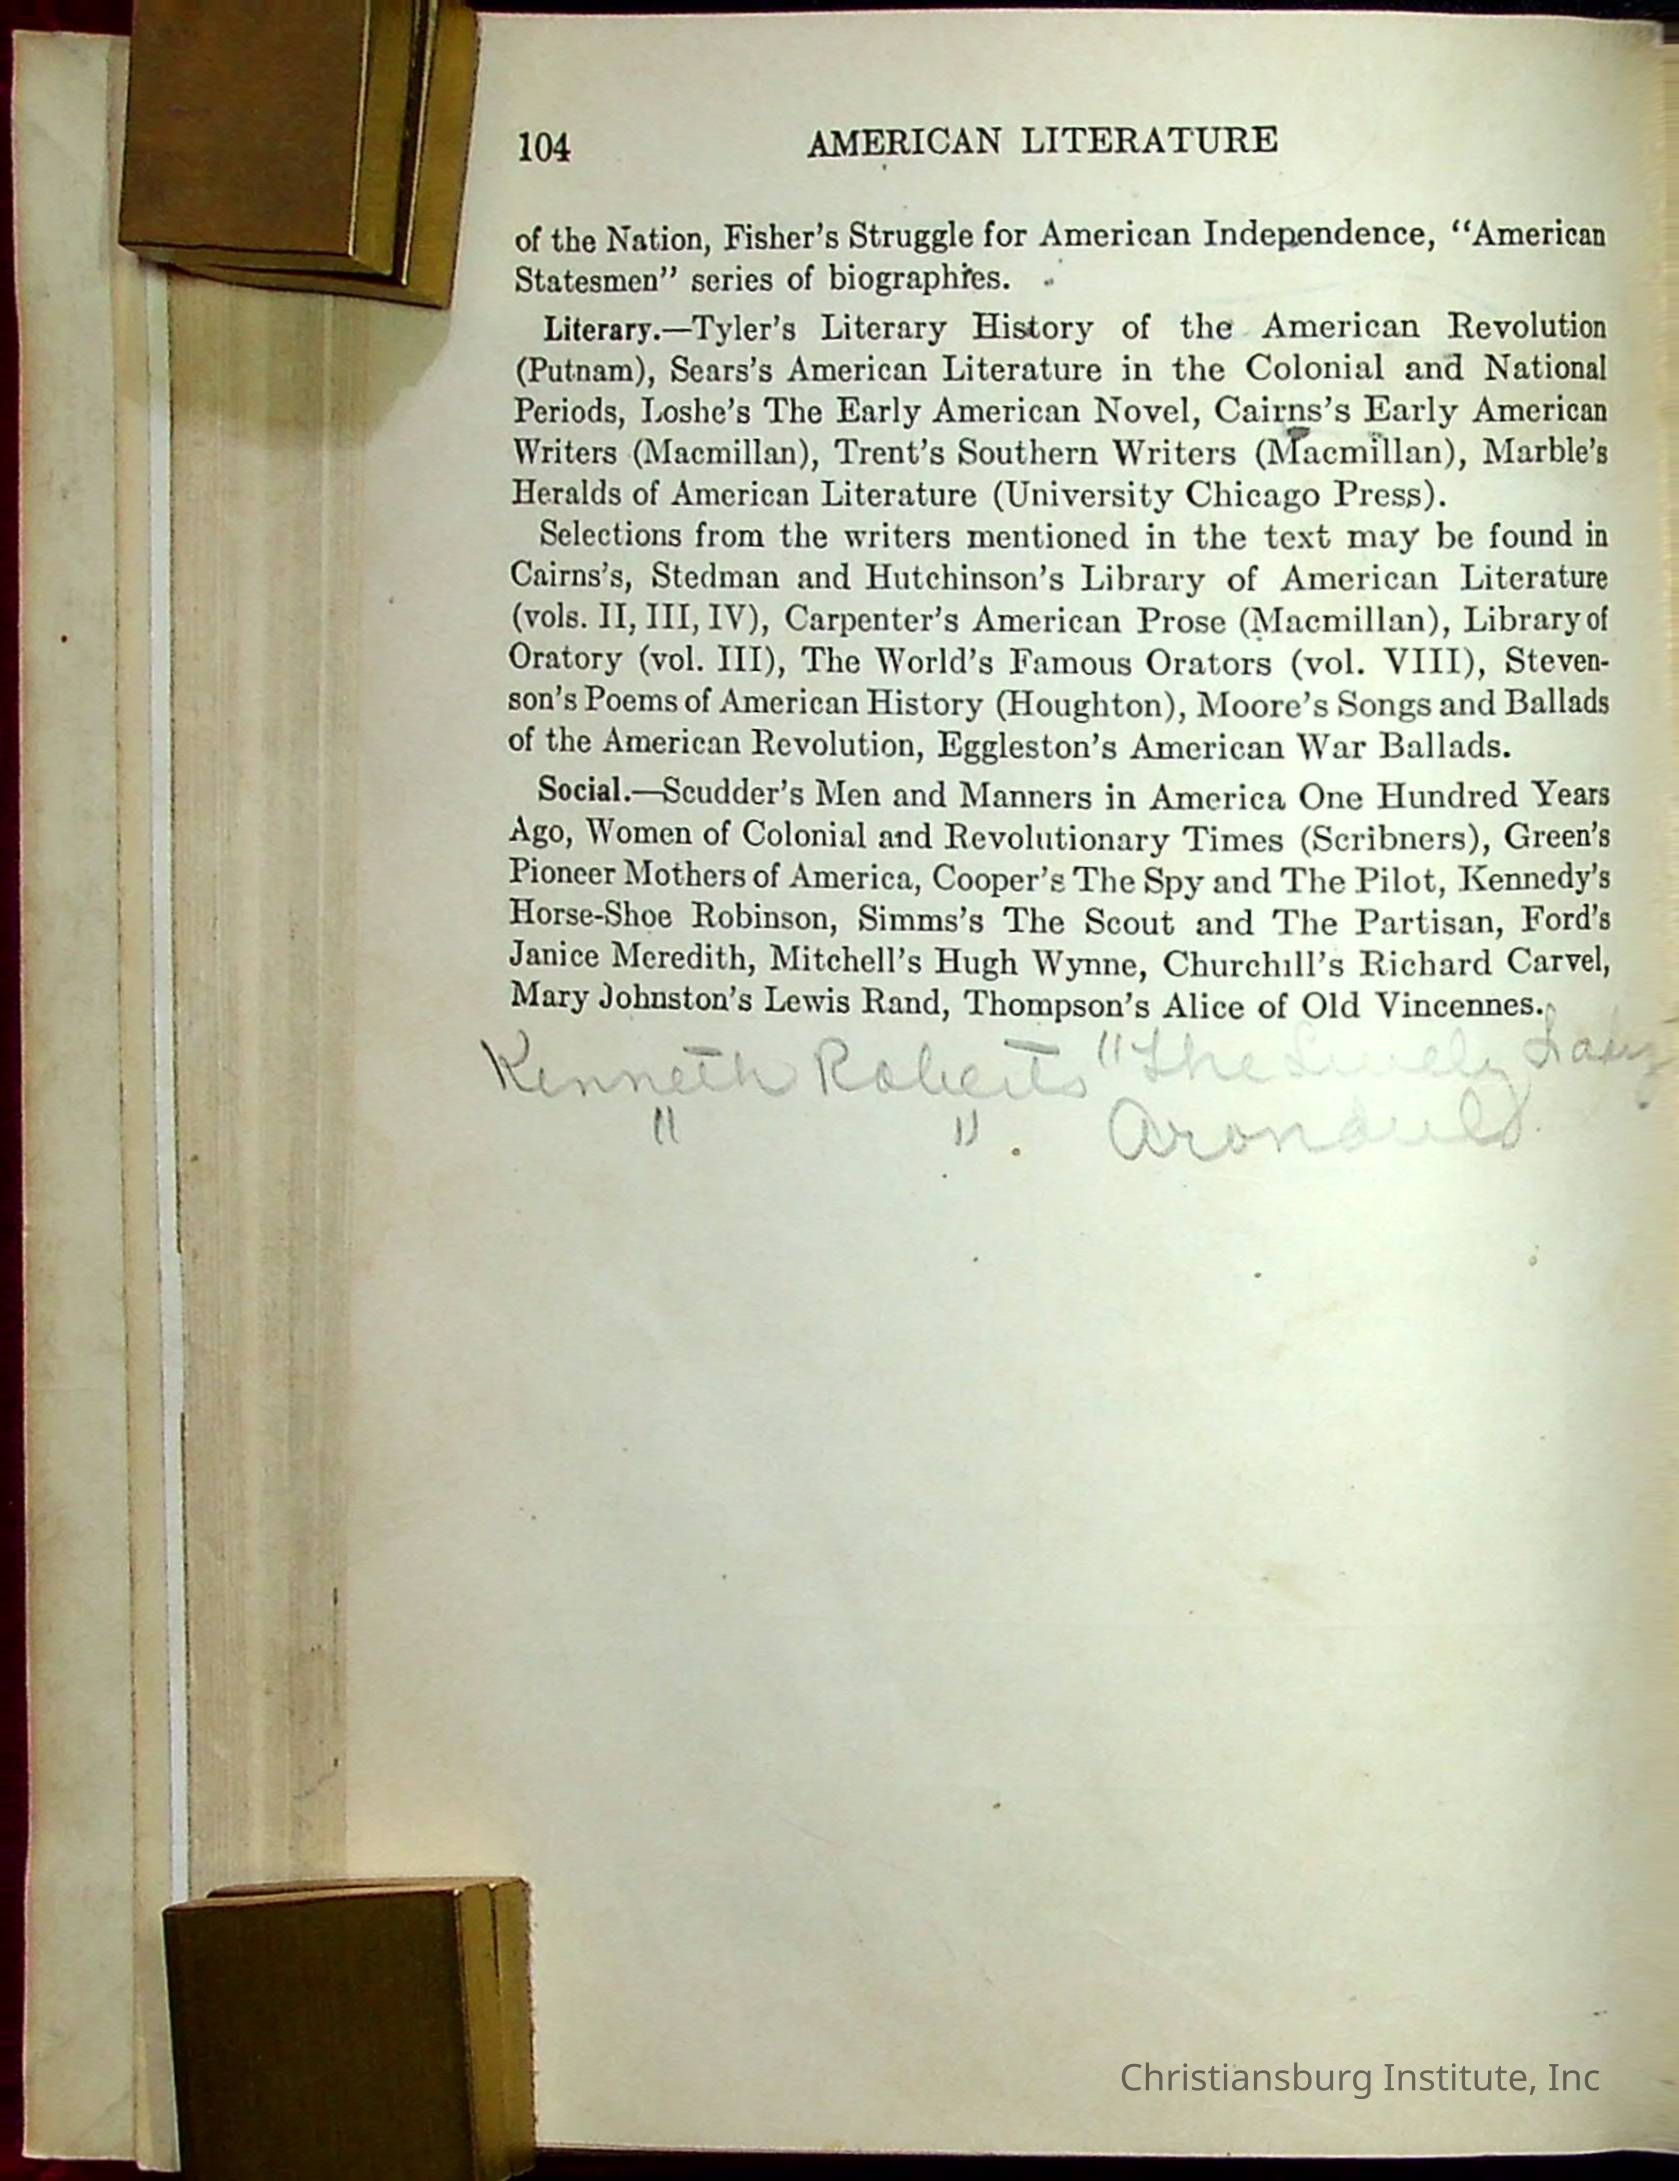 104 AMERICAN LITERATURE
of the Nation, Fisher's Struggle for American Independence, "American
Statesmen" series of biographies.
Literary.—Tyler's Literary History of the American Revolution
(Putnam), Sears's American Literature in the Colonial and National
Periods, Loshe's The Early American Novel, Cairns's Early American
Writers (Macmillan), Trent's Southern Writers (Macmillan), Marble's
Heralds of American Literature (University Chicago Press).
Selections from the writers mentioned in the text may be found in
Cairns's, Stedman and Hutchinson's Library of American Literature
(vols. II, III, IV), Carpenter's American Prose (Macmillan), Library of
Oratory (vol. III), The World's Famous Orators (vol. VIII), Steven-
son's Poems of American History (Houghton), Moore's Songs and Ballads
of the American Revolution, Eggleston's American War Ballads.
Social.—Scudder's Men and Manners in America One Hundred Years
Ago, Women of Colonial and Revolutionary Times (Scribners), Green's
Pioneer Mothers of America, Cooper's The Spy and The Pilot, Kennedy's
Horse-Shoe Robinson, Simms's The Scout and The Partisan, Ford's
Janice Meredith, Mitchell's Hugh Wynne, Churchill's Richard Carvel,
Mary Johnston's Lewis Rand, Thompson's Alice of Old Vincennes.
Kenneth Roberts "The Lively Lady
" " .
Christiansburg Institute, Inc